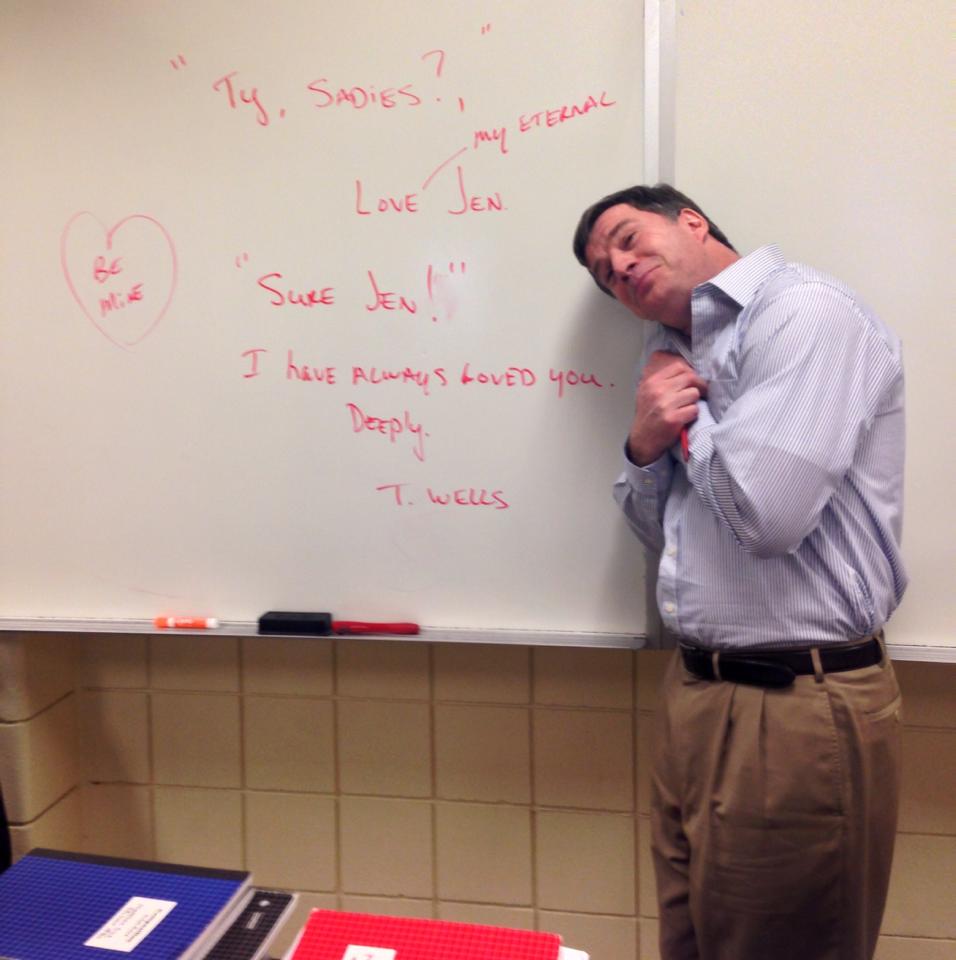 "Ty, SADiES?,"
my ETERNAL
LOVE JEN.
BE
MiNE
"SURE JEN!"
I hAVE ALWAYS LOVED you.
DEEPly.
T. WELLS